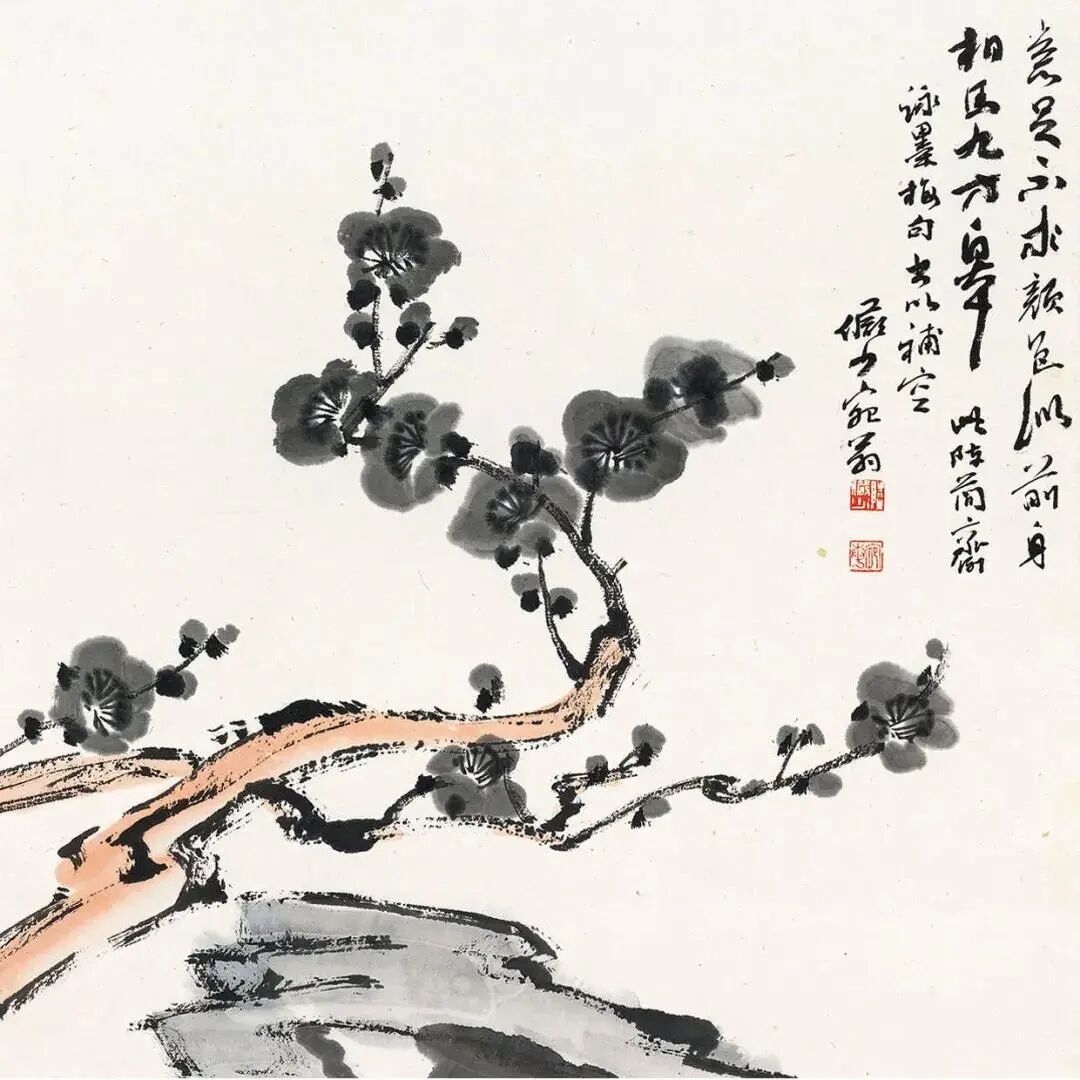 意足不求颜色似前身
相马九方皋 此陈简斋
咏墨梅句书以补空
俨少宛翁